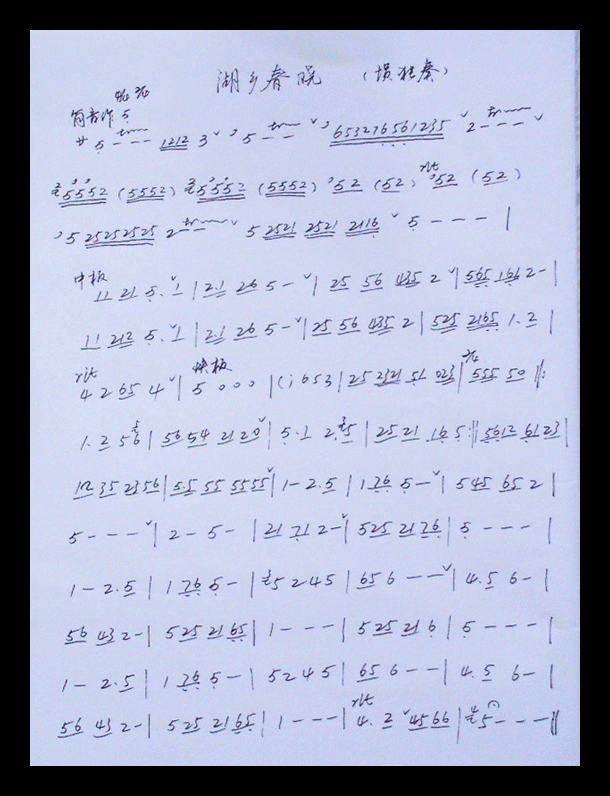 湖乡春晓 (埙独奏)
4/4 2/4
筒音作5
サ 5 - - - 1212 3 ˇ ' 5 - - ˇ ' 653276561235 ˇ 2 - - - ˇ
5552 (5552) 5552 (5552) '52 (52) rit '52 (52)
'5 25252525 2 - - - ˇ 5 2521 2521 2116 ˇ 5 - - - |
中板
11 21 5. ˇ1 | 2.1 26 5 - ˇ | 25 56 435 2 ˇ | 565 166 2 - |
11 212 5. ˇ1 | 2.1 26 5 - ˇ | 25 56 435 2 | 525 2165 1. 2 |
rit 快板 2/4
4 2 65 4 ˇ | 5 0 0 0 | (i 653 | 25 2321 51 023 | 555 50 ‖:
1. 2 5 6 | 56 54 21 20 ˇ | 5. 1 2 5 | 25 21 16 5 :‖ 5612 6123 |
12 35 23 56 | 5.5 55 5555 ˇ | 1 - 2. 5 | 1 76 5 - ˇ | 5 45 65 2 |
5 - - - ˇ | 2 - 5 - | 21 71 2 - ˇ | 525 21 76 | 5 - - - |
1 - 2. 5 | 1 76 5 - | 5 2 4 5 | 65 6 - - ˇ | 4. 5 6 - |
56 43 2 - | 5 25 21 65 | 1 - - - | 5 25 21 6 | 5 - - - |
1 - 2. 5 | 1 76 5 - | 5 2 4 5 | 65 6 - - | 4. 5 6 - |
rit
56 43 2 - | 5 25 21 65 | 1 - - - | 4. 2 ˇ 45 66 | 5 - - - ‖